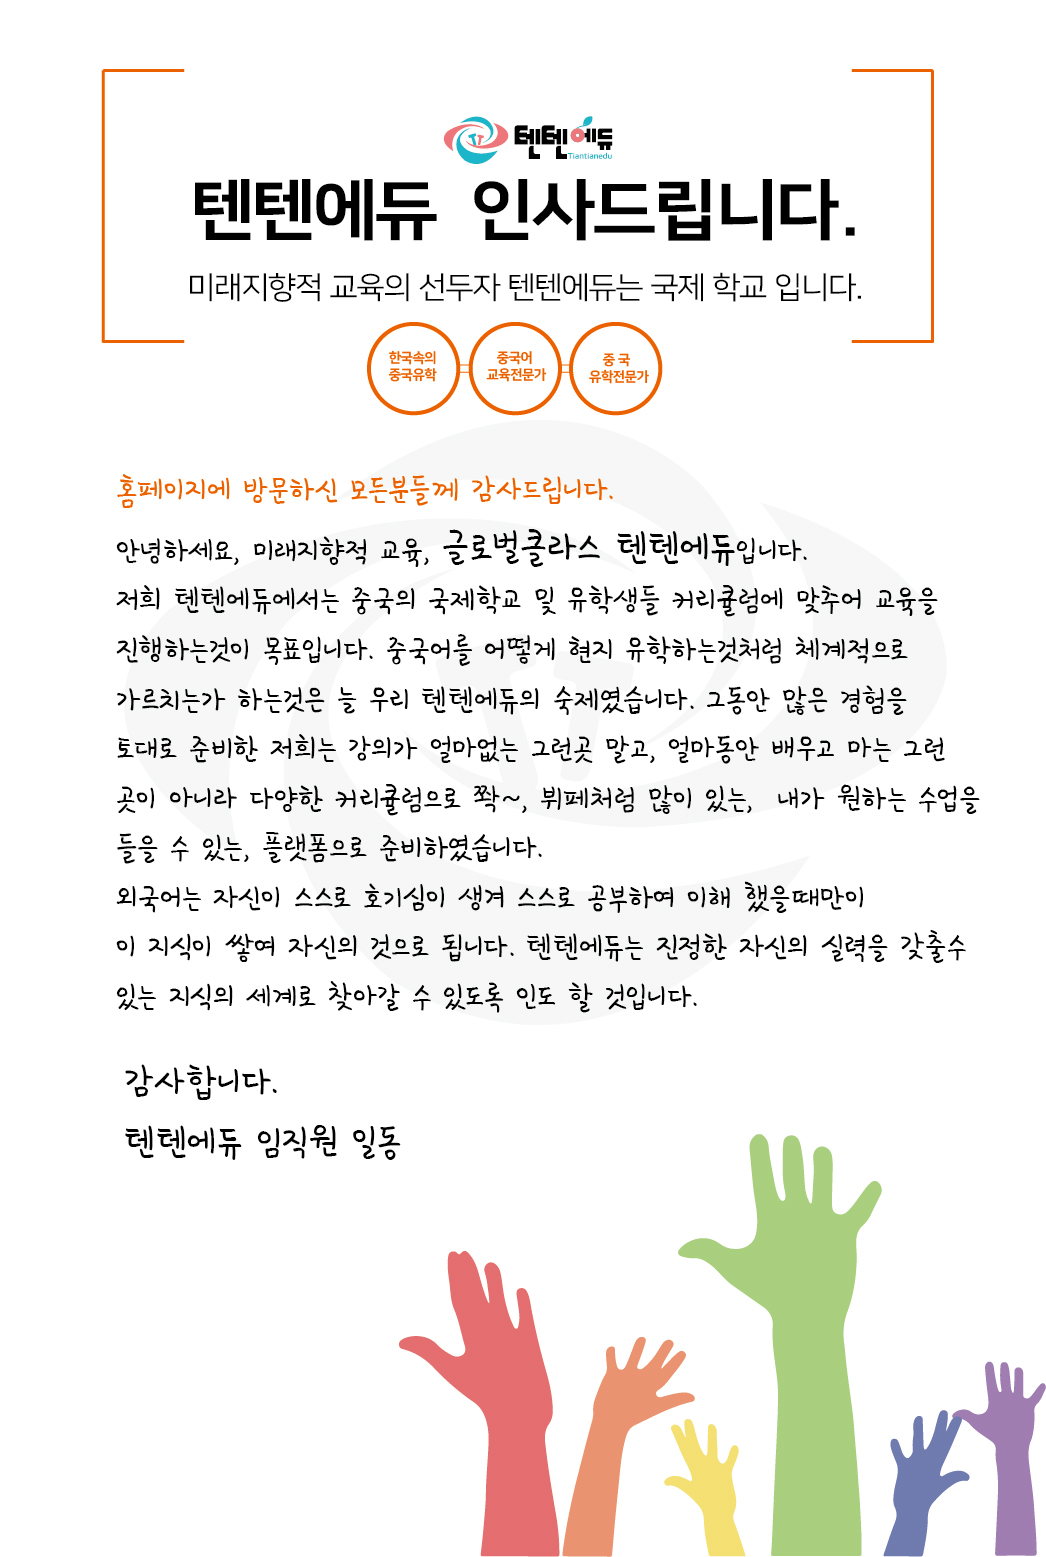 텐텐에듀
Tiantianedu
텐텐에듀 인사드립니다.
미래지향적 교육의 선두자 텐텐에듀는 국제 학교 입니다.
한국속의
중국유학
중국어
교육전문가
중 국
유학전문가
홈페이지에 방문하신 모든분들께 감사드립니다.
안녕하세요, 미래지향적 교육, 글로벌클라스 텐텐에듀입니다.
저희 텐텐에듀에서는 중국의 국제학교 및 유학생들 커리큘럼에 맞추어 교육을
진행하는것이 목표입니다. 중국어를 어떻게 현지 유학하는것처럼 체계적으로
가르치는가 하는것은 늘 우리 텐텐에듀의 숙제였습니다. 그동안 많은 경험을
토대로 준비한 저희는 강의가 얼마없는 그런곳 말고, 얼마동안 배우고 마는 그런
곳이 아니라 다양한 커리큘럼으로 쫙~, 뷔페처럼 많이 있는, 내가 원하는 수업을
들을 수 있는, 플랫폼으로 준비하였습니다.
외국어는 자신이 스스로 호기심이 생겨 스스로 공부하여 이해 했을때만이
이 지식이 쌓여 자신의 것으로 됩니다. 텐텐에듀는 진정한 자신의 실력을 갖출수
있는 지식의 세계로 찾아갈 수 있도록 인도 할 것입니다.
감사합니다.
텐텐에듀 임직원 일동